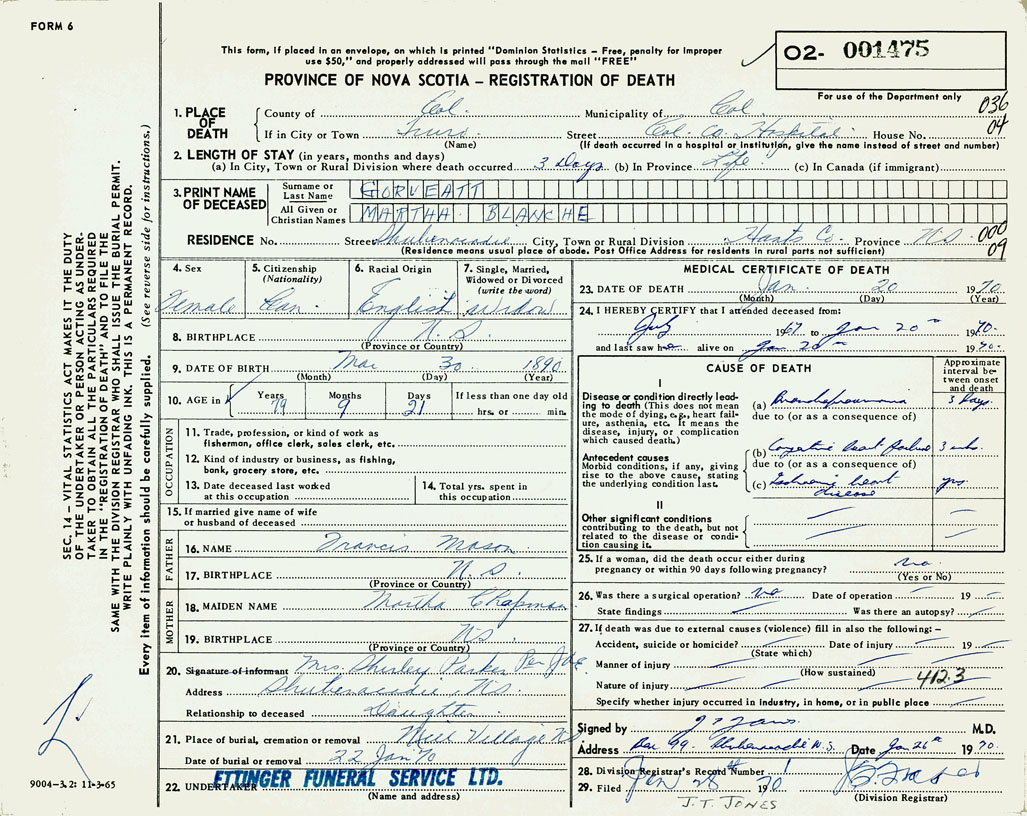 FORM 6
This form, if placed in an envelope, on which is printed "Dominion Statistics – Free, penalty for improper
use $50," and properly addressed will pass through the mail "FREE"
O2- 001475
PROVINCE OF NOVA SCOTIA – REGISTRATION OF DEATH
For use of the Department only
036
04
1. PLACE OF DEATH
County of Col. Municipality of Col
If in City or Town Truro. Street Col. Co. Hospital House No.
(Name) (If death occurred in a hospital or institution, give the name instead of street and number)
2. LENGTH OF STAY (in years, months and days)
(a) In City, Town or Rural Division where death occurred 3 Days (b) In Province Life (c) In Canada (if immigrant)
3. PRINT NAME OF DECEASED
Surname or Last Name GORVEATT
All Given or Christian Names MARTHA BLANCHE
RESIDENCE No. Street Shubenacadie City, Town or Rural Division Hants Co. Province N.S.
(Residence means usual place of abode. Post Office Address for residents in rural parts not sufficient)
000
09
4. Sex Female
5. Citizenship (Nationality) Can.
6. Racial Origin English
7. Single, Married, Widowed or Divorced (write the word) widow
8. BIRTHPLACE N.S
(Province or Country)
9. DATE OF BIRTH Mar 30 1890
(Month) (Day) (Year)
10. AGE in Years 79 Months 9 Days 21 If less than one day old hrs. or min.
OCCUPATION
11. Trade, profession, or kind of work as
fisherman, office clerk, sales clerk, etc.
12. Kind of industry or business, as fishing,
bank, grocery store, etc.
13. Date deceased last worked
at this occupation
14. Total yrs. spent in
this occupation
15. If married give name of wife
or husband of deceased
FATHER
16. NAME Francis Mason
17. BIRTHPLACE N.S.
(Province or Country)
MOTHER
18. MAIDEN NAME Martha Chapman
19. BIRTHPLACE NS
(Province or Country)
20. Signature of informant Mrs. Shirley Parker Per
Address Shubenacadie, N.S.
Relationship to deceased Daughter
21. Place of burial, cremation or removal Mill Village NS
Date of burial or removal 22 Jan 70
22. UNDERTAKER ETTINGER FUNERAL SERVICE LTD.
(Name and address)
MEDICAL CERTIFICATE OF DEATH
23. DATE OF DEATH Jan. 20 1970
(Month) (Day) (Year)
24. I HEREBY CERTIFY that I attended deceased from:
July 1967 to Jan 20th 1970.
and last saw her alive on Jan 20th 1970.
CAUSE OF DEATH
Approximate interval between onset and death
I
Disease or condition directly leading to death (This does not mean the mode of dying, e.g., heart failure, asthenia, etc. It means the disease, injury, or complication which caused death.)
(a) Bronchopneumonia 3 days
due to (or as a consequence of)
Antecedent causes
Morbid conditions, if any, giving rise to the above cause, stating the underlying condition last.
(b) Congestive heart failure 3 wks.
due to (or as a consequence of)
(c) Ischaemic heart disease yrs.
II
Other significant conditions
contributing to the death, but not related to the disease or condition causing it.
25. If a woman, did the death occur either during
pregnancy or within 90 days following pregnancy? no.
(Yes or No)
26. Was there a surgical operation? no Date of operation 19
State findings Was there an autopsy?
27. If death was due to external causes (violence) fill in also the following: –
Accident, suicide or homicide? Date of injury 19
(State which)
Manner of injury
(How sustained)
412.3
Nature of injury
Specify whether injury occurred in industry, in home, or in public place
Signed by M.D.
Address Box 99. Shubenacadie N.S. Date Jan 26th 1970.
28. Division Registrar's Record Number 1
29. Filed Jan 28 1970
(Division Registrar)
J.T. JONES
SEC. 14 – VITAL STATISTICS ACT MAKES IT THE DUTY
OF THE UNDERTAKER OR PERSON ACTING AS UNDER-
TAKER TO OBTAIN ALL THE PARTICULARS REQUIRED
IN THE "REGISTRATION OF DEATH" AND TO FILE THE
SAME WITH THE DIVISION REGISTRAR WHO SHALL ISSUE THE BURIAL PERMIT.
WRITE PLAINLY WITH UNFADING INK. THIS IS A PERMANENT RECORD.
Every item of information should be carefully supplied. (See reverse side for instructions.)
9004-3.2: 11-3-65